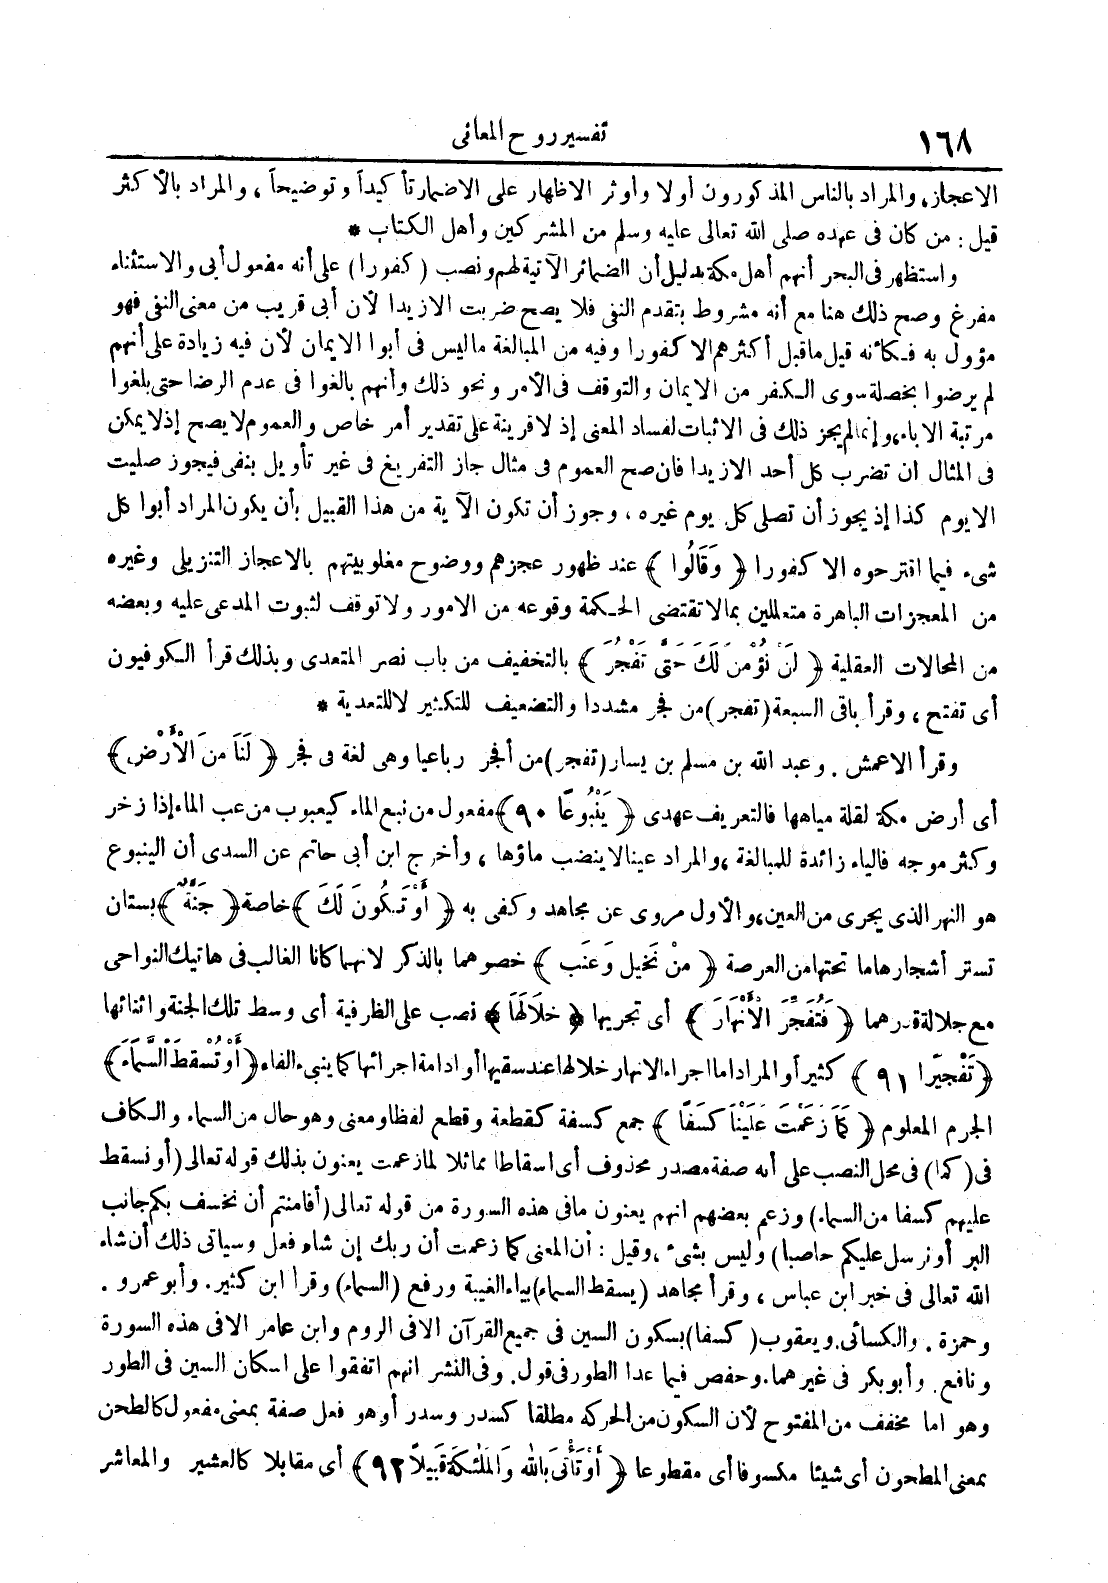 ١٦٨
تفسير روح المعانى
الاعجاز، والمراد بالناس المذكورون أولا وأوثر الاظهار على الاضمار تأكيداً وتوضيحاً ، والمراد بالأكثر
قيل : من كان فى عهده صلى الله تعالى عليه وسلم من المشركين وأهل الكتاب *
واستظهر فى البحر أنهم أهل مكة بدليل أن الضمائر الآتية لهم ونصب ( كفورا ) على أنه مفعول أبى والاستثناء
مفرغ وصح ذلك هنا مع أنه مشروط بتقدم النفى فلا يصح ضربت الا زيدا لأن أبى قريب من معنى النفى فهو
مؤول به فكأنه قيل ما قبل أكثرهم الا كفورا وفيه من المبالغة ما ليس فى أبوا الايمان لأن فيه زيادة على أنهم
لم يرضوا بخصلة سوى الكفر من الايمان والتوقف فى الأمر ونحو ذلك وأنهم بالغوا فى عدم الرضا حتى بلغوا
مرتبة الاباء، وإنما لم يجز ذلك فى الاثبات لفساد المعنى إذ لا قرينة على تقدير أمر خاص والعموم لا يصح إذ لا يمكن
فى المثال ان تضرب كل أحد الا زيدا فان صح العموم فى مثال جاز التفريغ فى غير تأويل بنفى فيجوز صليت
الا يوم كذا إذ يجوز أن تصلى كل يوم غيره ، وجوز أن تكون الآية من هذا القبيل بأن يكون المراد أبوا كل
شىء فيما اقترحوه الا كفورا ﴿ وَقَالُوا ﴾ عند ظهور عجزهم ووضوح مغلوبيتهم بالاعجاز التنزيلى وغيره
من المعجزات الباهرة متعللين بما لا تقتضى الحكمة وقوعه من الامور ولا توقف لثبوت المدعى عليه وبعضه
من المحالات العقلية ﴿ لَنْ نُؤْمِنَ لَكَ حَتَّى تَفْجُرَ ﴾ بالتخفيف من باب نصر المتعدى وبذلك قرأ الكوفيون
أى تفتح ، وقرأ باقى السبعة ( تفجر ) من فجر مشددا والتضعيف للتكثير لا للتعدية *
وقرأ الاعمش . وعبد الله بن مسلم بن يسار ( تفجر ) من أفجر رباعيا وهى لغة فى فجر ﴿ لَنَا مِنَ الْأَرْضِ ﴾
أى أرض مكة لقلة مياهها فالتعريف عهدى ﴿ يَنْبُوعًا ٩٠ ﴾ مفعول من نبع الماء كيعبوب من عب الماء إذا زخر
وكثر موجه فالياء زائدة للمبالغة ، والمراد عينا لا ينضب ماؤها ، وأخرج ابن أبى حاتم عن السدى أن الينبوع
هو النهر الذى يجرى من العين، والأول مروى عن مجاهد وكفى به ﴿ أَوْ تَكُونَ لَكَ ﴾ خاصة ﴿ جَنَّةٌ ﴾ بستان
تستر أشجارها ما تحتها من العرصة ﴿ مِنْ نَخِيلٍ وَعِنَبٍ ﴾ خصوهما بالذكر لانهما كانا الغالب فى هاتيك النواحى
مع جلالة قدرهما ﴿ فَتُفَجِّرَ الْأَنْهَارَ ﴾ أى تجريها ﴿ خِلَالَهَا ﴾ نصب على الظرفية أى وسط تلك الجنة واثنائها
﴿ تَفْجِيرًا ٩١ ﴾ كثيرا والمراد اما اجراء الانهار خلالها عند سقيها أو ادامة اجرائها كما ينبىء الفاء ﴿ أَوْ تُسْقِطَ السَّمَاءَ ﴾
الجرم المعلوم ﴿ كَمَا زَعَمْتَ عَلَيْنَا كِسَفًا ﴾ جمع كسفة كقطعة وقطع لفظا ومعنى وهو حال من السماء والكاف
فى ( كما ) فى محل النصب على أنه صفة مصدر محذوف أى اسقاطا مماثلا لما زعمت يعنون بذلك قوله تعالى ( أو نسقط
عليهم كسفا من السماء ) وزعم بعضهم انهم يعنون ما فى هذه السورة من قوله تعالى ( أفامنتم أن نخسف بكم جانب
البر أو نرسل عليكم حاصبا ) وليس بشىء ، وقيل : أن المعنى كما زعمت أن ربك إن شاء فعل وسياتى ذلك أن شاء
الله تعالى فى خبر ابن عباس ، وقرأ مجاهد ( يسقط السماء ) بياء الغيبة ورفع ( السماء ) وقرأ ابن كثير . وأبو عمرو .
وحمزة . والكسائى . ويعقوب ( كسفا ) بسكون السين فى جميع القرآن الا فى الروم وابن عامر الا فى هذه السورة
ونافع . وأبو بكر فى غيرهما . وحفص فيما عدا الطور فى قول . وفى النشر انهم اتفقوا على اسكان السين فى الطور
وهو اما مخفف من المفتوح لأن السكون من الحركه مطلقا كسدر وسدر أو هو فعل صفة بمعنى مفعول كالطحن
بمعنى المطحون أى شيئا مكسوفا أى مقطوعا ﴿ أَوْ تَأْتِىَ بِاللهِ وَالْمَلَئِكَةِ قَبِيلًا ٩٢ ﴾ أى مقابلا كالعشير والمعاشر